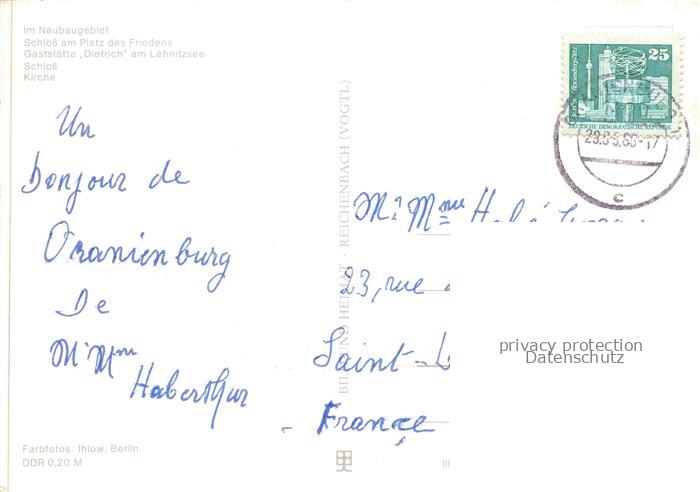 Im Neubaugebiet
Schloß am Platz des Friedens
Gaststätte „Dietrich" am Lehnitzsee
Schloß
Kirche
Un
bonjour de
Oranienburg
De
Mr Mme
Haberthur
Farbfotos: Ihlow, Berlin
DDR 0,20 M
BILD UND HEIMAT · REICHENBACH (VOGTL)
25
DEUTSCHE DEMOKRATISCHE REPUBLIK
c
Mr Mme
23, rue
Saint-
France
privacy protection
Datenschutz
III